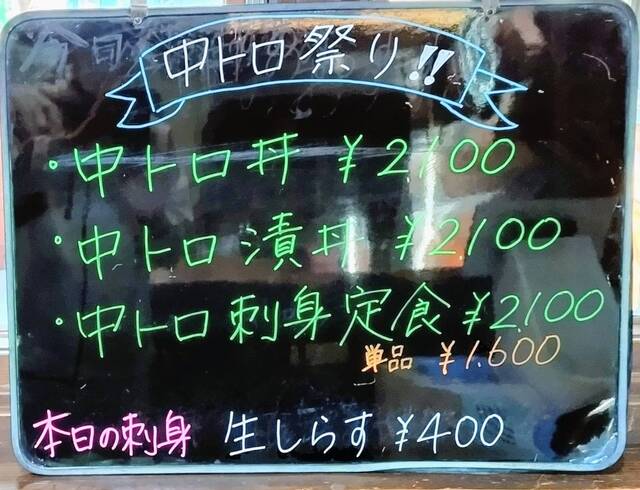 中トロ祭り!!
・中トロ丼 ¥2,100
・中トロ漬丼 ¥2,100
・中トロ刺身定食 ¥2,100
単品 ¥1,600
本日の刺身 生しらす ¥400